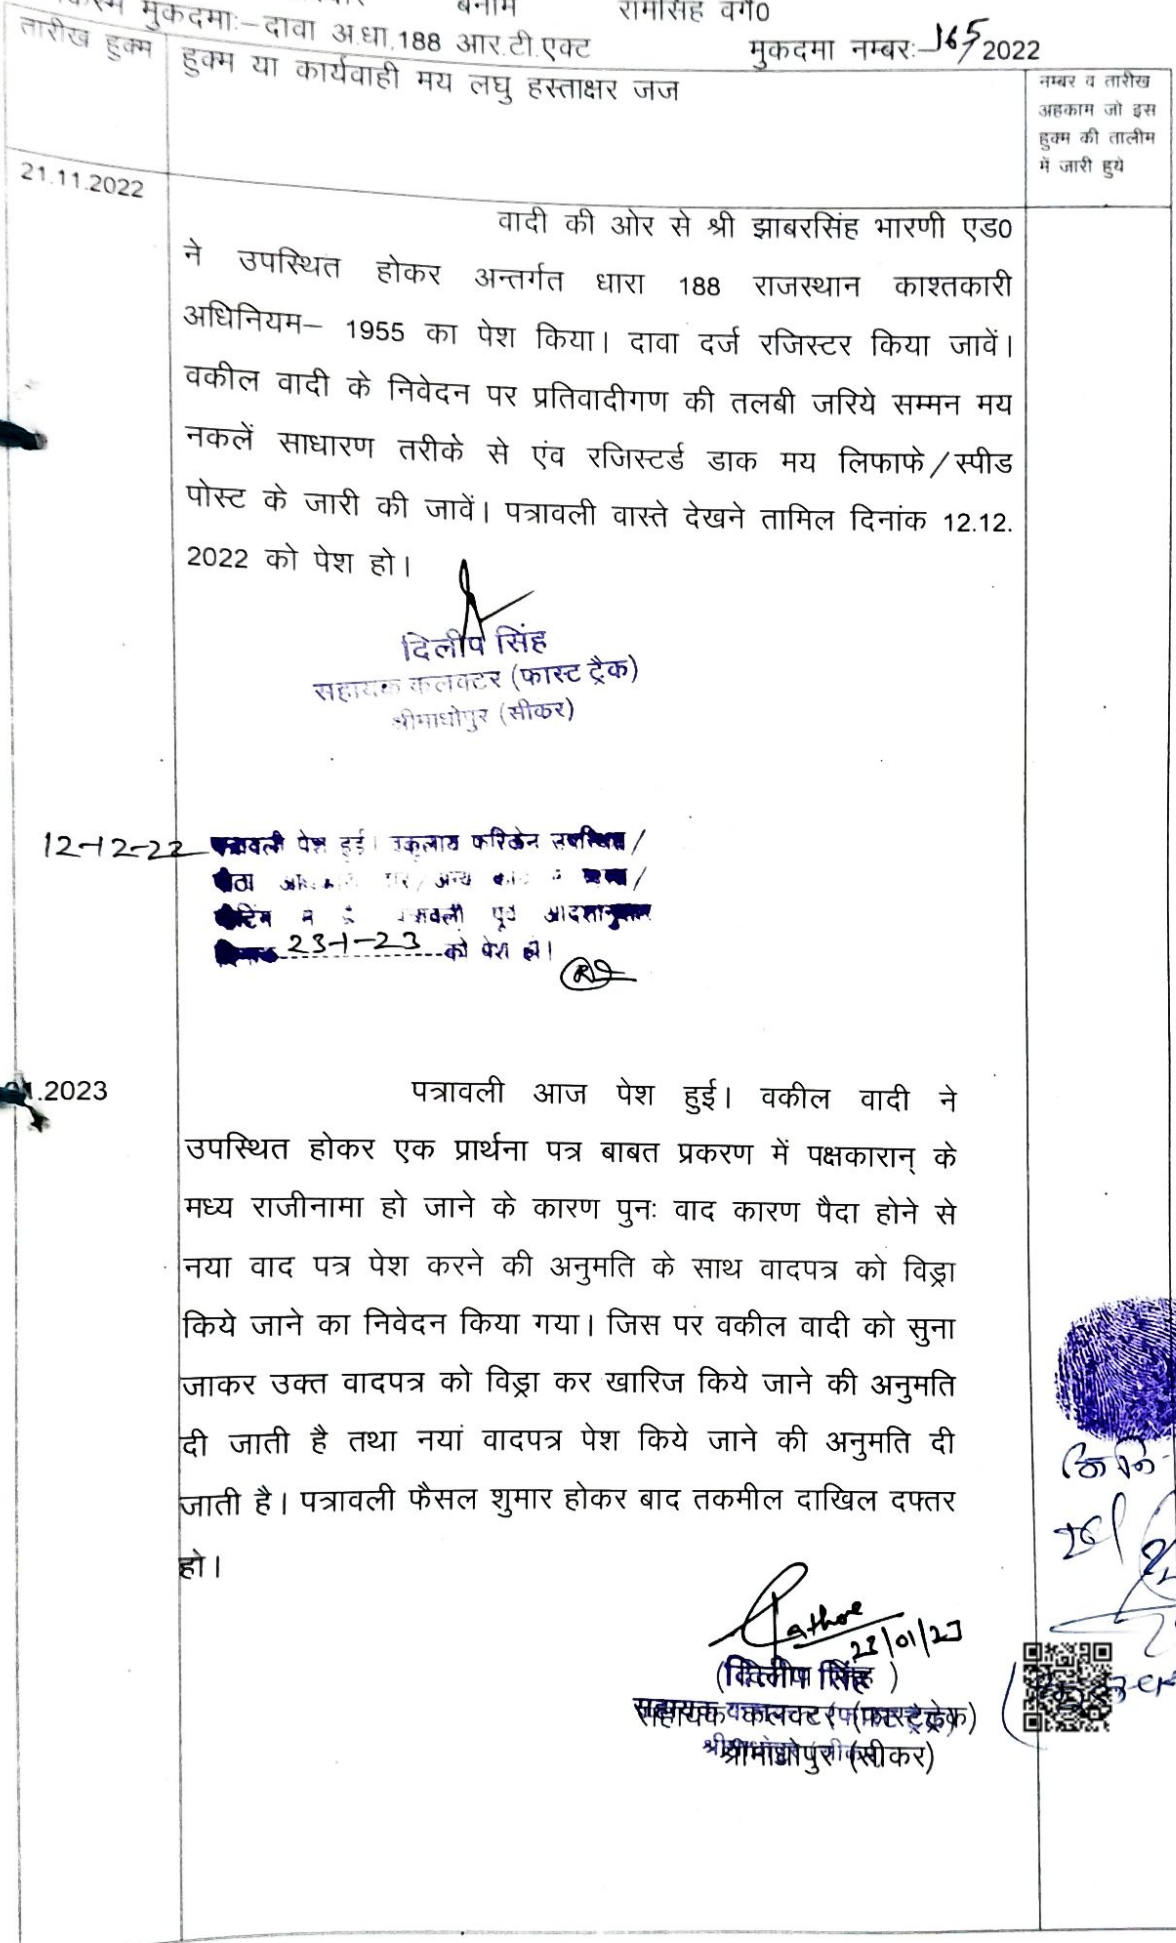 बनाम रामसिंह वगै0
मुकदमाः–दावा अ.धा.188 आर.टी.एक्ट मुकदमा नम्बरः–165/2022
तारीख हुक्म
हुक्म या कार्यवाही मय लघु हस्ताक्षर जज
नम्बर व तारीख
अहकाम जो इस
हुक्म की तालीम
में जारी हुये
21.11.2022
वादी की ओर से श्री झाबरसिंह भारणी एड0
ने उपस्थित होकर अन्तर्गत धारा 188 राजस्थान काश्तकारी
अधिनियम– 1955 का पेश किया। दावा दर्ज रजिस्टर किया जावें।
वकील वादी के निवेदन पर प्रतिवादीगण की तलबी जरिये सम्मन मय
नकलें साधारण तरीके से एंव रजिस्टर्ड डाक मय लिफाफे/स्पीड
पोस्ट के जारी की जावें। पत्रावली वास्ते देखने तामिल दिनांक 12.12.
2022 को पेश हो।
दिलीप सिंह
सहायक कलक्टर (फास्ट ट्रैक)
श्रीमाधोपुर (सीकर)
12-12-22 पेश हुई।
अन्य
आदेशानुसार
23-1-23 को पेश हो।
.2023
पत्रावली आज पेश हुई। वकील वादी ने
उपस्थित होकर एक प्रार्थना पत्र बाबत प्रकरण में पक्षकारान् के
मध्य राजीनामा हो जाने के कारण पुनः वाद कारण पैदा होने से
नया वाद पत्र पेश करने की अनुमति के साथ वादपत्र को विड्रा
किये जाने का निवेदन किया गया। जिस पर वकील वादी को सुना
जाकर उक्त वादपत्र को विड्रा कर खारिज किये जाने की अनुमति
दी जाती है तथा नयां वादपत्र पेश किये जाने की अनुमति दी
जाती है। पत्रावली फैसल शुमार होकर बाद तकमील दाखिल दफ्तर
हो।
Rathore
23/01/23
(दिलीप सिंह)
सहायक कलक्टर (फास्ट ट्रैक)
श्रीमाधोपुर (सीकर)